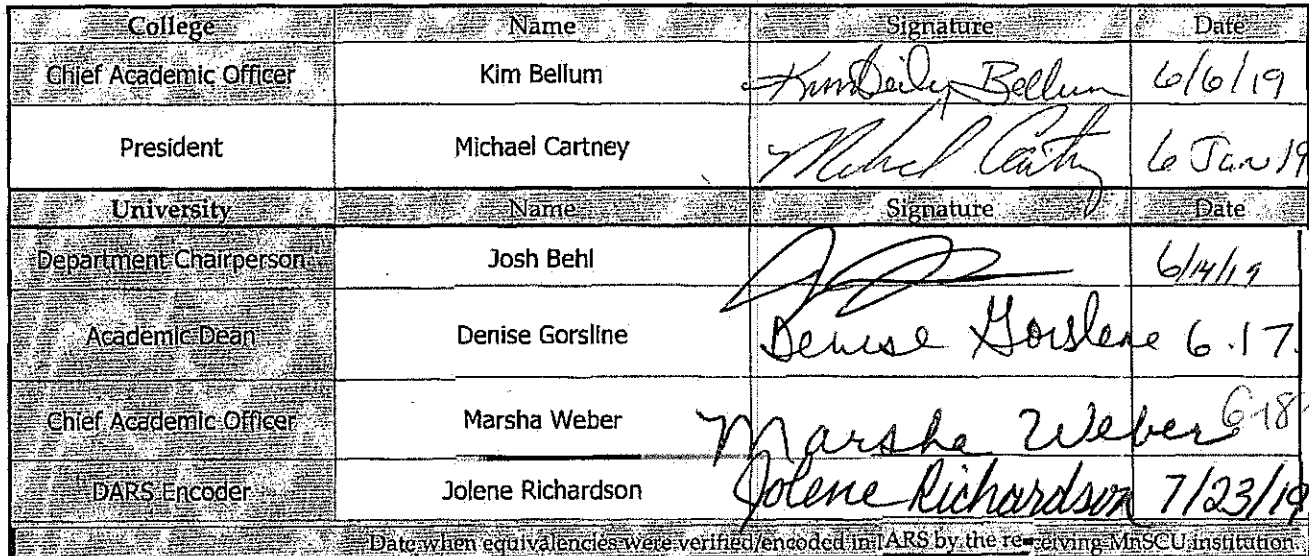 College Name Signature Date
Chief Academic Officer Kim Bellum Kimberly Bellum 6/6/19
President Michael Cartney Michael Cartney 6 Jun 19
University Name Signature Date
Department Chairperson Josh Behl 6/14/19
Academic Dean Denise Gorsline Denise Gorsline 6.17.
Chief Academic Officer Marsha Weber Marsha Weber 6-18
DARS Encoder Jolene Richardson Jolene Richardson 7/23/19
Date when equivalencies were verified/encoded in DARS by the receiving MnSCU institution.